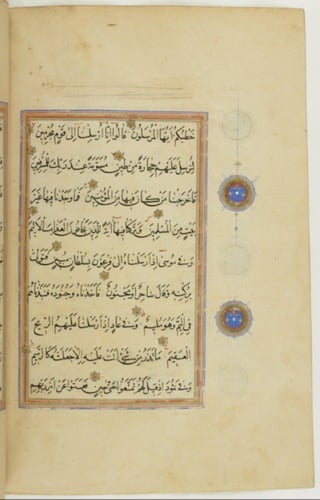 خَطْبُكُمْ اَيُّهَا الْمُرْسَلُونَ قَالُوا اِنَّا اُرْسِلْنَا اِلٰى قَوْمٍ مُجْرِمِينَ
لِنُرْسِلَ عَلَيْهِمْ حِجَارَةً مِنْ طِينٍ مُسَوَّمَةً عِنْدَ رَبِّكَ لِلْمُسْرِفِينَ
فَاَخْرَجْنَا مَنْ كَانَ فِيهَا مِنَ الْمُؤْمِنِينَ فَمَا وَجَدْنَا فِيهَا غَيْرَ
بَيْتٍ مِنَ الْمُسْلِمِينَ وَتَرَكْنَا فِيهَا اٰيَةً لِلَّذِينَ يَخَافُونَ الْعَذَابَ الْاَلِيمَ
وَفِي مُوسٰى اِذْ اَرْسَلْنَاهُ اِلٰى فِرْعَوْنَ بِسُلْطَانٍ مُبِينٍ فَتَوَلّٰى
بِرُكْنِهِ وَقَالَ سَاحِرٌ اَوْ مَجْنُونٌ فَاَخَذْنَاهُ وَجُنُودَهُ فَنَبَذْنَاهُمْ
فِي الْيَمِّ وَهُوَ مُلِيمٌ وَفِي عَادٍ اِذْ اَرْسَلْنَا عَلَيْهِمُ الرِّيحَ
الْعَقِيمَ مَا تَذَرُ مِنْ شَيْءٍ اَتَتْ عَلَيْهِ اِلَّا جَعَلَتْهُ كَالرَّمِيمِ
وَفِي ثَمُودَ اِذْ قِيلَ لَهُمْ تَمَتَّعُوا حَتّٰى حِينٍ فَعَتَوْا عَنْ اَمْرِ رَبِّهِمْ